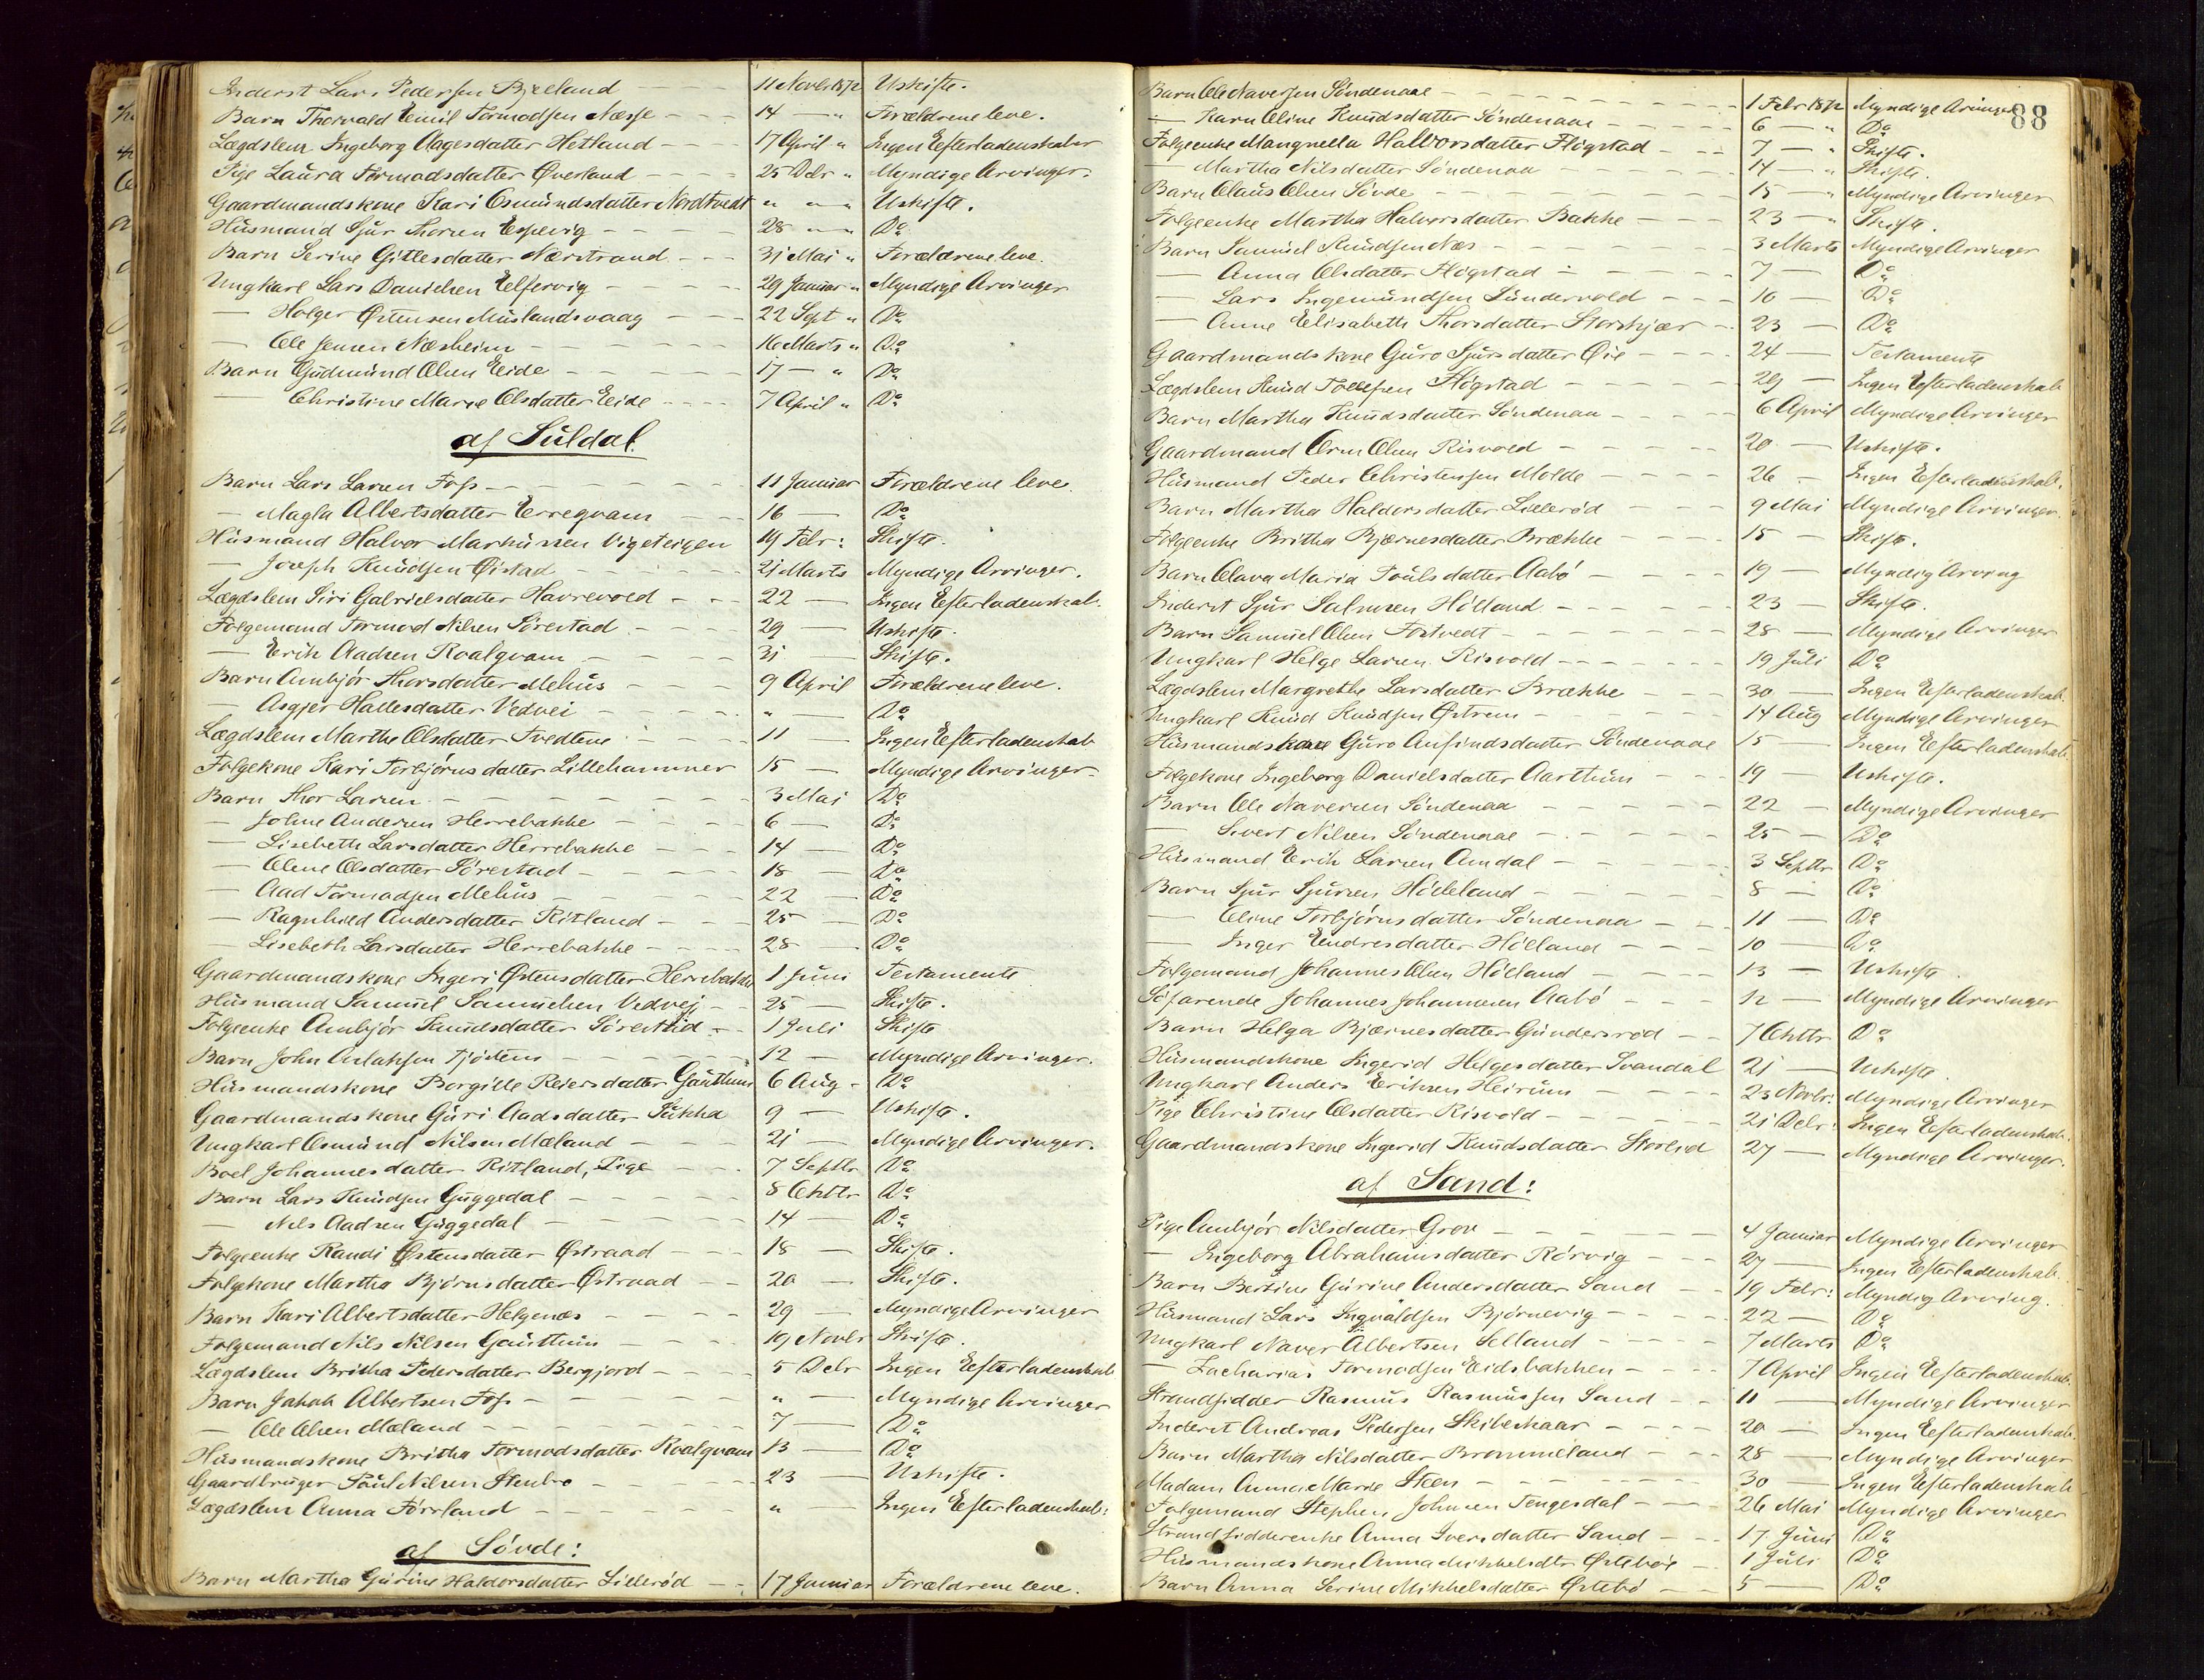 Inderst Lars Pedersen Bjelland 11 Novbr 1872 Uskifte.
Barn Thorvald Emil Tormodsen Nesse 14 — " Forældrene leve.
Lægdslem Ingeborg Aagesdatter Hetland 17 April " Ingen Efterladenskaber
Pige Laura Tormodsdatter Øverland 25 Debr " Myndige Arvinger.
Gaardmandskone Kari Osmundsdatter Nordtvedt " " " Uskifte.
Husmand Sjur Thorsen Espevig 28 " " Do
Barn Serine Gitlesdatter Nærstrand 31 Mai " Forældrene leve.
Ungkarl Lars Danielsen Elfervig 29 Januar " Myndige Arvinger
— Holger Østensen Muslandsvaag 22 Sept " Do
— Ole Jensen Næsheim 16 Marts " Do
Barn Gudmund Olsen Eide 17 — " Do
— Christine Marie Olsdatter Eide 7 April " Do
af Suldal.
Barn Lars Larsen Foss 11 Januar Forældrene leve.
— Magla Albertsdatter Erregvam 16 — Do
Husmand Halvor Markussen Vigeteigen 19 Febr: Skifte.
— Joseph Knudsen Øistad 21 Marts Myndige Arvinger.
Lægdslem Siri Gabrielsdatter Havrevold 22 — Ingen Efterladenskab.
Folgemand Tormod Nilsen Sørestad 29 — Uskifte.
— Erik Aadsen Roalqvam 31 Skifte.
Barn Ambjør Thorsdatter Mehus 9 April Forældrene leve.
— Asgjer Hallesdatter Vedvei " — Do
Lægdslem Marthe Olsdatter Tvedtene 11 — Ingen Efterladenskab
Folgekone Kari Torbjørnsdatter Lillehammer 15 — Myndige Arvinger.
Barn Thor Larsen 3 Mai Do
— Johne Andersen Herrebakke 6 — Do
— Lisebeth Larsdatter Herrebakke 14 — Do
— Olene Olsdatter Sørestad 18 — Do
— Aad Tormodsen Mehus 22 — Do
— Ragnhild Andersdatter Ritland 25 — Do
— Lisebeth Larsdatter Herrebakke 28 — Do
Gaardmandskone Ingeri Østensdatter Herrebakke 1 Juni Testamente
Husmand Samuel Samuelsen Vedvej 25 — Skifte.
Folgeenke Ambjør Samuelsdatter Sørestad 1 Juli Skifte
Barn John Aslaksen Fjøstens 12 — Myndige Arvinger.
Husmandskone Borgille Reiersdatter Gauthun 6 Aug — Do
Gaardmandskone Guri Aadsdatter Sukka 9 — Uskifte.
Ungkarl Osmund Nilsen Mæland 21 — Myndige Arvinger.
Boel Johannesdatter Ritland, Pige 7 Septbr Do
Barn Lars Knudsen Guggedal 8 Oktbr Do
— Nils Aadsen Guggedal 14 — Do
Folgeenke Randi Østensdatter Østraad 18 — Skifte.
Folgekone Martha Bjørnsdatter Østraad 20 — Skifte.
Barn Kari Albertsdatter Helgenæs 29 — Myndige Arvinger
Folgemand Nils Nilsen Gauthun 19 Novbr Skifte.
Lægdslem Britha Pedersdatter Bergjord 5 Debr Ingen Efterladenskab
Barn Jakob Albertsen Foss " — Myndige Arvinger
— Ole Olsen Mæland 7 — Do
Husmandskone Britha Tormodsdatter Roalqvam 13 — Do
Gaardbruger Poul Nilsen Stenbro 23 — Uskifte.
Lægdslem Anna Førrland " — Ingen Efterladenskab:
af Søvde:
Barn Martha Gurine Haldorsdatter Lillerød 17 Januar Forældrene leve.
88
Barn Ole Naversen Søndenaae 1 Febr 1872 Myndige Arvinger
— Karn Oline Knudsdatter Søndenaae 6 — " Do
Folgeenke Mangnella Halvorsdatter Fløgstad 7 — " Skifte.
— Martha Nilsdatter Søndenaa 14 — " Skifte.
Barn Olaus Olsen Søvde 15 " Myndige Arvinger
Folgeenke Martha Halvorsdatter Bakke 23 — " Skifte.
Barn Samuel Knudsen Næs 3 Marts Myndige Arvinger
— Anna Olsdatter Fløgstad 7 — Do
— Lars Ingemundsen Sundervold 10 — Do
— Anne Elisabeth Thorsdatter Storskjær 23 — Do
Gaardmandskone Guro Sjursdatter Øie 24 — Testamente
Lægdslem Knud Tollefsen Fløgstad 29 — Ingen Efterladenskab
Barn Martha Knudsdatter Søndenaa 6 April Myndige Arvinger
Gaardmand Orm Olsen Risvold 20 — Uskifte.
Husmand Peder Christensen Molde 26 — Ingen Efterladenskab.
Barn Martha Haldorsdatter Lillerød 9 Mai Myndige Arvinger.
Folgeenke Britha Bjørnesdatter Brække 15 — Skifte.
Barn Olava Maria Poulsdatter Aabø 19 — Myndig Arving
Inderst Sjur Salmsen Hølland 23 — Skifte.
Barn Samuel Olsen Tostvedt 28 — Myndige Arvinger
Ungkarl Helge Larsen Risvold 19 Juli Do
Lægdslem Margrethe Larsdatter Brække 30 — Ingen Efterladenskab.
Ungkarl Knud Knudsen Østrem 14 Aug Myndige Arvinger
Husmandskone Guro Anfindsdatter Søndenaae 15 — Ingen Efterladenskab.
Folgekone Ingeborg Danielsdatter Aarthun 19 — Uskifte.
Barn Ole Naversen Søndenaa 22 — Myndige Arvinger
— Sivert Nilsen Søndenaae 25 — Do
Husmand Erik Larsen Amdal 3 Septbr Do
Barn Sjur Sjursen Hølleland 8 — Do
— Oline Torbjørnsdatter Søndenaa 11 — Do
— Inger Endresdatter Hølland 10 — Do
Folgemand Johannes Olsen Hølland 13 — Uskifte.
Søfarende Johannes Johannesen Aabø 12 — Myndige Arvinger
Barn Helga Bjørnesdatter Gundersrød 7 Oktbr Do
Husmandskone Ingerid Helgesdatter Svandal 21 — Uskifte.
Ungkarl Anders Eriksen Heirum 23 Novbr: Myndige Arvinger
Pige Christine Olsdatter Risvold 21 Debr: Ingen Efterladenskab.
Gaardmandskone Ingerid Knudsdatter Storlid 27 — Myndige Arvinger.
af Sand:
Pige Ambjør Nilsdatter Grov 4 Januar Myndige Arvinger
— Ingeborg Abrahamsdatter Rørvig 27 — Ingen Efterladenskab.
Barn Bertine Gurine Andersdatter Sand 19 Febr: Myndig Arving.
Husmand Lars Ingvaldsen Bjørnevig 22 — Do
Ungkarl Naver Albertsen Selland 7 Marts Do
— Zacharias Tormodsen Eidsbakken 7 April Ingen Efterladenskab.
Strandsidder Rasmus Rasmussen Sand 11 — Myndige Arvinger
Inderst Andreas Pedersen Skibeskaar 20 — Ingen Efterladenskab.
Barn Martha Nilsdatter Brommeland 28 — Myndige Arvinger
Madam Anna Marie Steen 30 — Ingen Efterladenskab
Folgemand Stephen Johnsen Tengesdal 26 Mai Myndige Arvinger
Strandsidderenke Anna Iversdatter Sand 17 Juni Do
Husmandskone Anna Mikkelsdtr Østebøe 1 Juli Do
Barn Anna Serine Mikkelsdatter Østebø 5 — Do